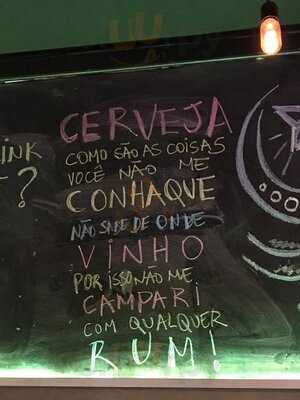 CERVEJA
COMO SÃO AS COISAS
VOCÊ NÃO ME
CONHAQUE
NÃO SABE DE ONDE
VINHO
POR ISSO NÃO ME
CAMPARI
COM QUALQUER
RUM!
INK
?